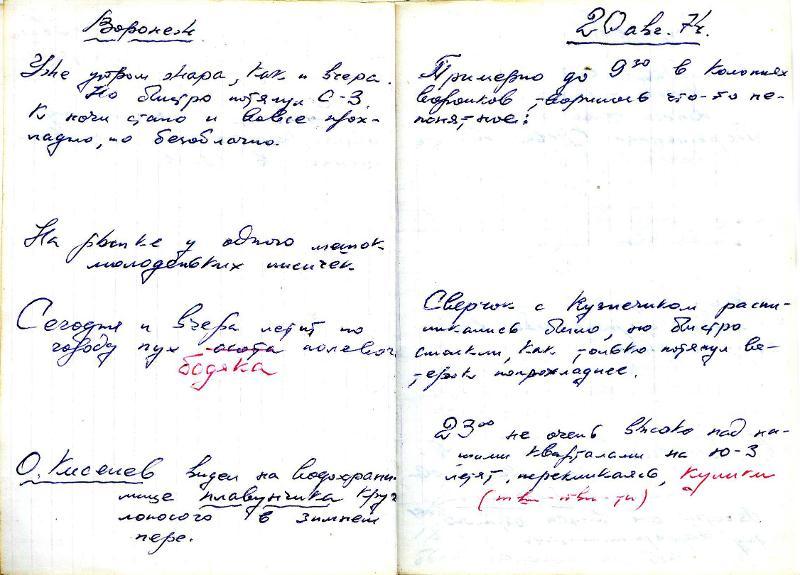 Воронеж.
Уже утром жара, как и вчера.
Но быстро потянул С-З.
К ночи стало и вовсе прох-
ладно, но безоблачно.
На рынке у одного мешок
молоденьких лисичек.
Сегодня и вчера летит по
городу пух осота полевого
бодяка
О. Киселев видел на водохрани-
лище плавунчика круг
лоносого в зимнем
пере.
20 авг. 74.
Примерно до 9 30 в колониях
воронков творилось что-то не-
понятное:
Сверчок с Кузнечиком распи-
ликались было, но быстро
смолкли, как только потянул ве-
терок попрохладнее.
23 00 не очень высоко над на-
шими кварталами на Ю-З
летят, перекликаясь, кулики
(тви-тви-ти)